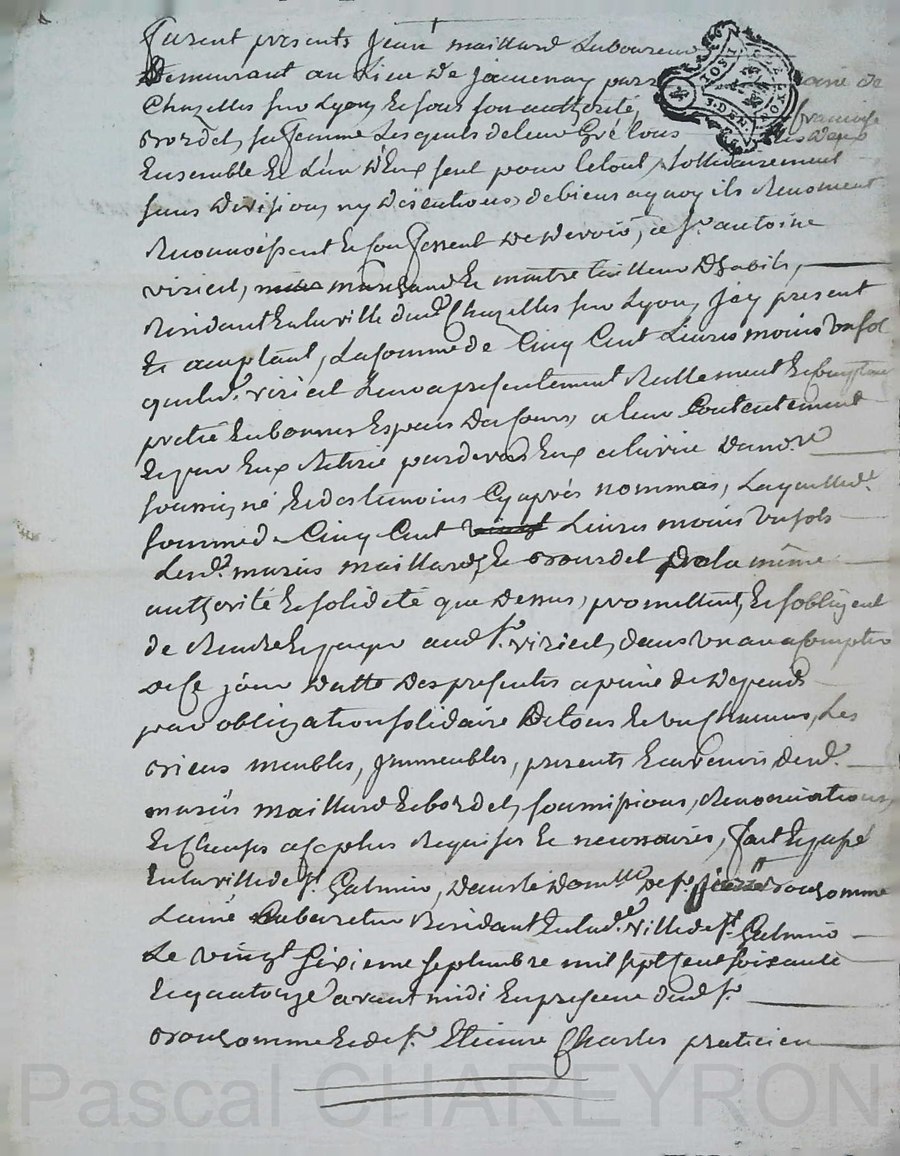 Furent presents Jean maillard Laboureur
Demeurant au Lieu De Jamenay parr
Chazelles sur Lyon, Et sous son authorité françoise
Bordel, sa femme Lesquels de leur Gré tous Les Deux
Ensemble Et L'un D'Eux seul pour le tout, sollidairement
sans Division, ny Discutions de biens a quoy ils Renoncent
Reconnoissent Et confessent De Devoir, a sr. antoine
viricel, marchand Et maitre tailleur D'habits,
Residant En la ville dud. Chazelles sur Lyon, Icy present
Et acceptant, La somme de Cinq Cent Livres moins un sol
que led. viricel Leur a presentement Reellement Et comptant
preté En bonnes Especes De cours, a leur Contentement
Et par Eux Retiré pardevers Eux a la vüe Du nore
soussigné Et des temoins Cy après nommés, Laquelle de.
somme de Cinq Cent vingt Livres moins un sols
Lesd. mariés maillard, Et Bourdel De la même
authorité Et solidité que Dessus, promettent, Et s'obligent
de Rendre Et payer aud. sr. viricel, dans un an a Compter
De Ce jour Datte Des presentes a peine de Depends
par obligation solidaire De tous Et un Chacuns, Les
Biens meubles, Immeubles, presents Et a venir desd.
mariés maillard Et bordel, soumissions, Renonciations,
Et Clauses a ce plus Requises Et necessaires, fait Et passé
En la ville de St. Galmier, Dans le Domlle De sr. Bonhomme
L'ainé Cabaretier Residant En lad. ville de St. Galmier
Le vingt sixieme septembre mil sept cent soixante
Et quatorze avant midi En presence dud. sr.
Bonhomme Et de sr. Etienne Charles praticien
Pascal CHAREYRON